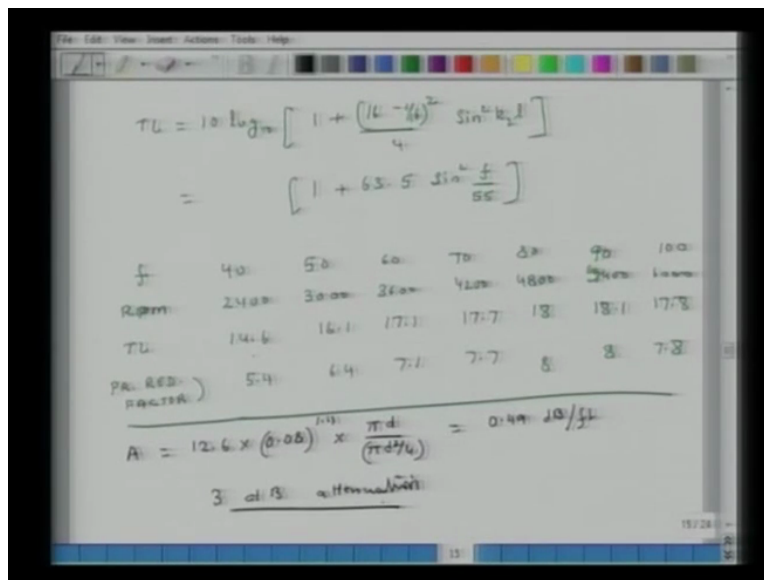 File Edit View Insert Actions Tools Help
TL = 10 log₁₀ [ 1 + (16 - 1/16)² / 4 sin² k₂l ]
= [ 1 + 63.5 sin² f/55 ]
f 40 50 60 70 80 90 100
Rpm 2400 3000 3600 4200 4800 5400 6000
TL 14.6 16.1 17.1 17.7 18 18.1 17.8
PR. RED. FACTOR) 5.4 6.4 7.1 7.7 8 8 7.8
A = 12.6 × (0.08)^1.4 × πd / (πd²/4) = 0.49 dB/ft
3 dB attenuation
15/28
15